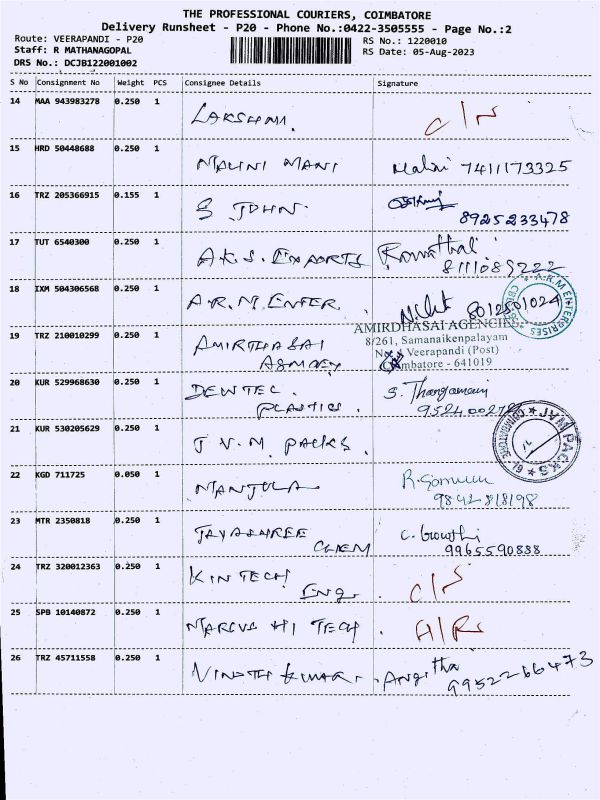 THE PROFESSIONAL COURIERS, COIMBATORE
Delivery Runsheet - P20 - Phone No.:0422-3505555 - Page No.:2
Route: VEERAPANDI - P20
RS No.: 1220010
Staff: R MATHANAGOPAL
RS Date: 05-Aug-2023
DRS No.: DCJB122001002
S No Consignment No Weight PCS Consignee Details Signature
14 MAA 943983278 0.250 1 LAKSHMI.
15 HRD 50448688 0.250 1 MALINI MANI Malini 7411173325
16 TRZ 205366915 0.155 1 S JOHN.
8925233478
17 TUT 6540300 0.250 1 A.K.S. EXPORTS
8111089222
18 IXM 504306568 0.250 1 A.R.M. ENTER. 8012501024
A.R.M ENTERPRISES
19 TRZ 210010299 0.250 1 AMIRTHA SAI
AMIRDHASAI AGENCIES
8/261, Samanaikenpalayam
Veerapandi (Post)
Coimbatore - 641019
20 KUR 529968630 0.250 1 DEWTEC S. Thangamani
PLASTICS.
21 KUR 530205629 0.250 1 J V. M PACKS.
JAM PACKS
22 KGD 711725 0.050 1 MANJULA
9842818198
23 MTR 2350818 0.250 1 JAYASHREE C. Gowthi
CHEM 9965590888
24 TRZ 320012363 0.250 1 KINTECH
Eng.
25 SPB 10140872 0.250 1 MARCUS HI TECH.
26 TRZ 45711558 0.250 1 VINOTH KUMAR. Angitha
9952266473